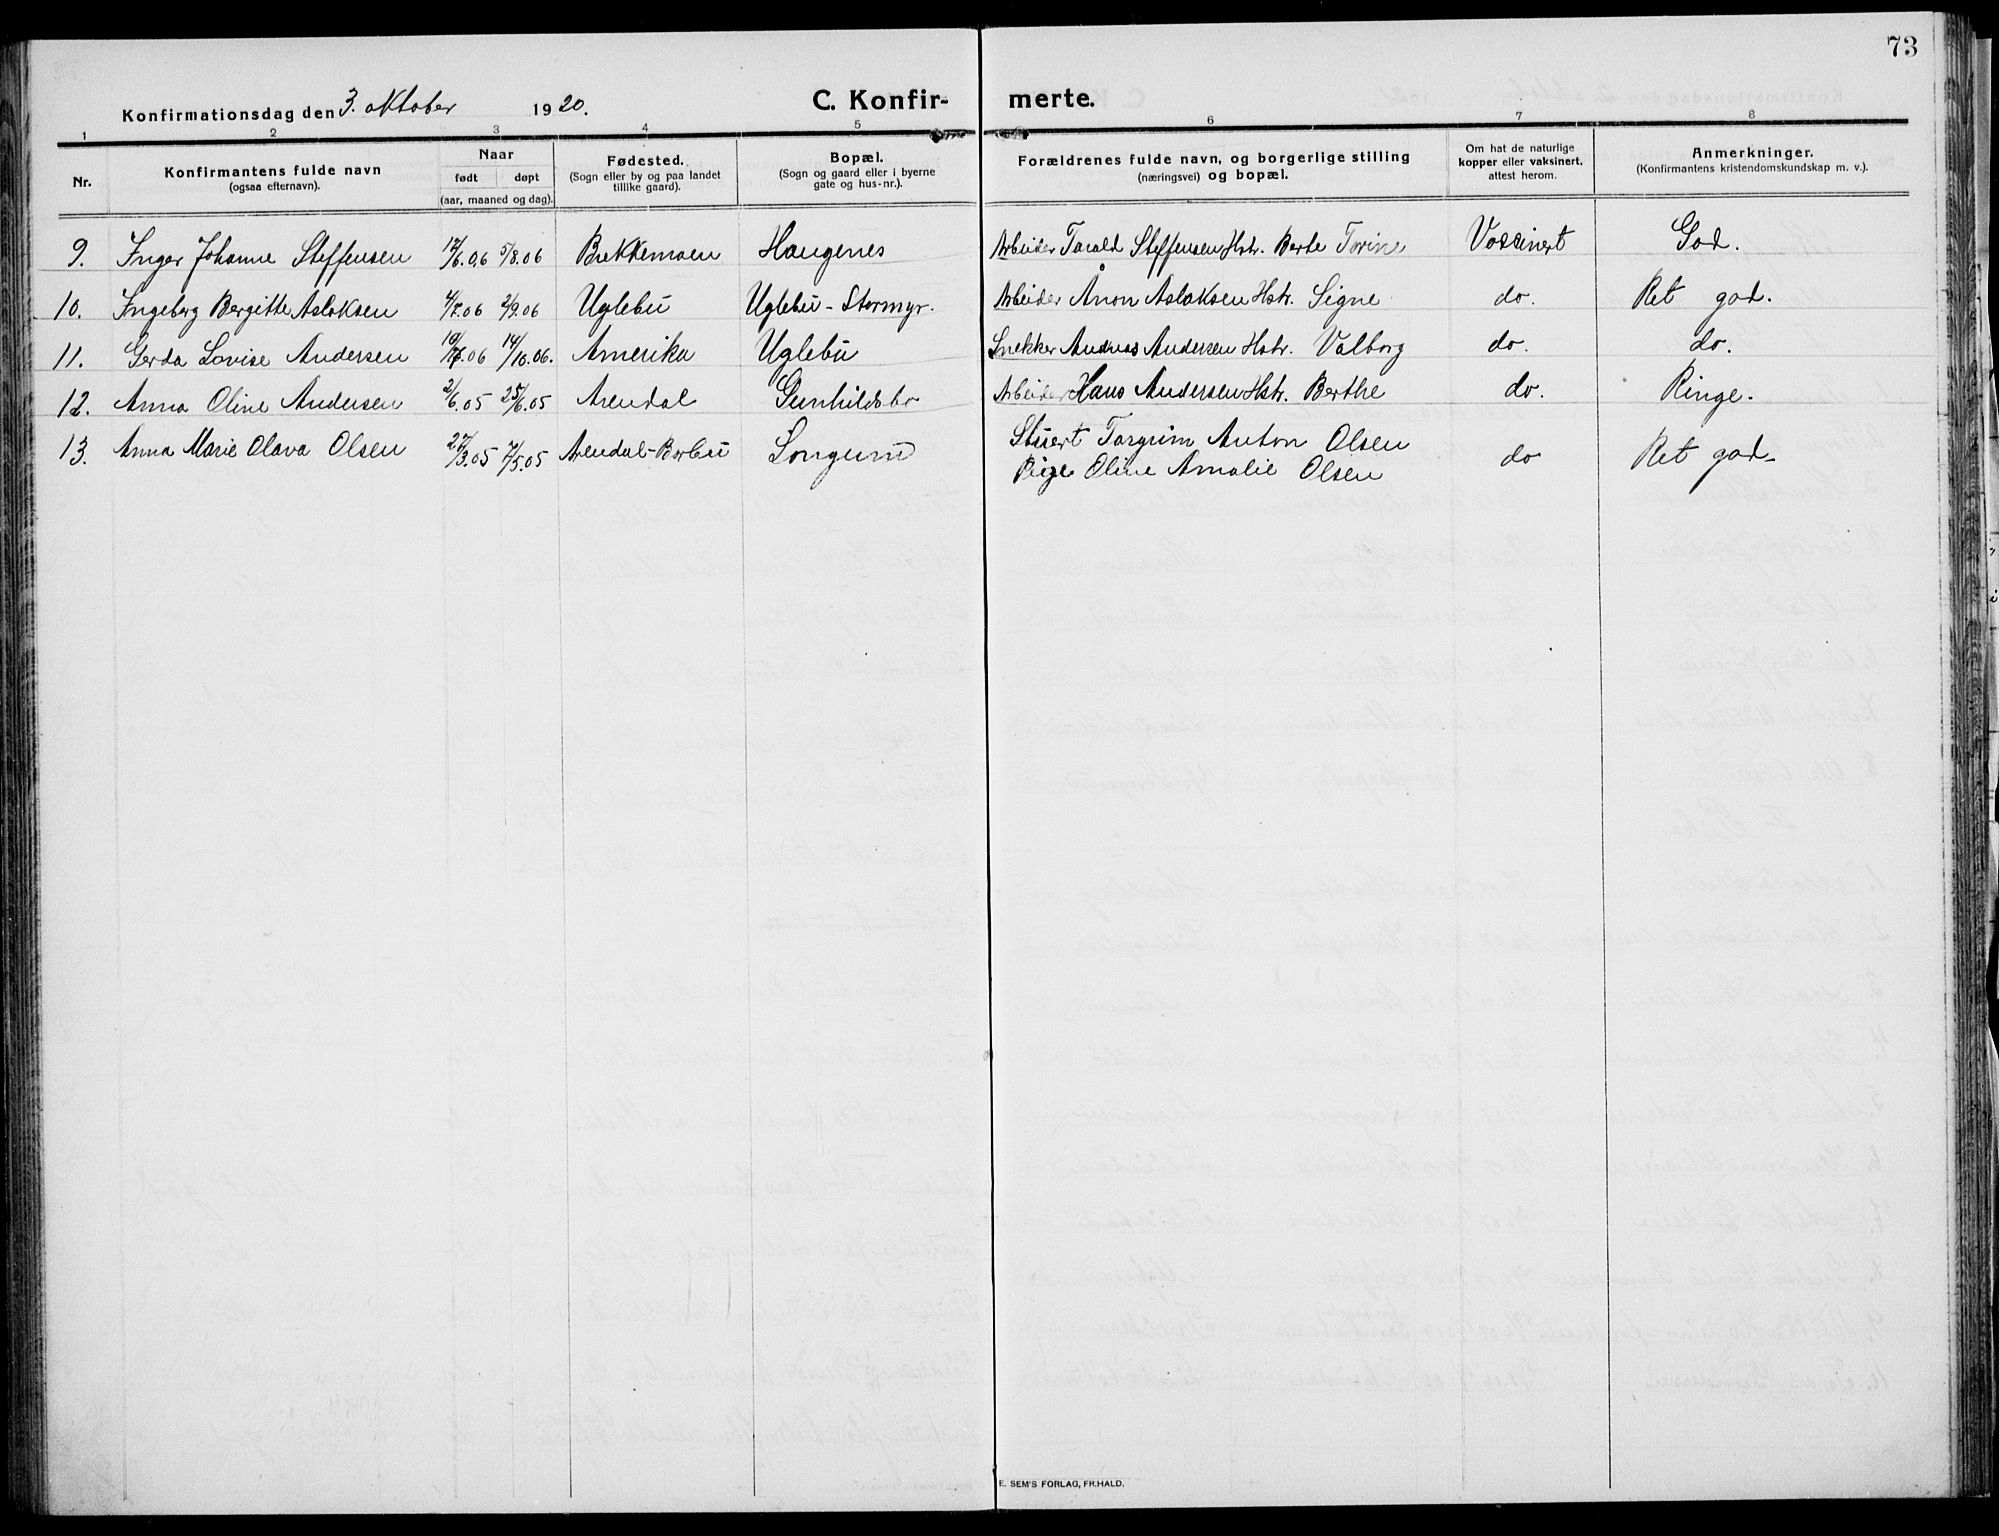 73
Konfirmationsdag den 3. oktober 1920. C. Konfir- merte.
1 2 3 4 5 6 7 8
Nr. Konfirmantens fulde navn (ogsaa efternavn). Naar født døpt (aar, maaned og dag). Fødested. (Sogn eller by og paa landet tillike gaard). Bopæl. (Sogn og gaard eller i byerne gate og hus-nr.). Forældrenes fulde navn, og borgerlige stilling (næringsvei) og bopæl. Om hat de naturlige kopper eller vaksinert, attest herom. Anmerkninger. (Konfirmantens kristendomskundskap m. v.).
9. Inger Johanne Steffensen 12/6.06 5/8.06 Bekkemoen Haugenes Arbeider Tarald Steffensen Hstr. Berte Torine Vassinert God.
10. Ingeborg Bergitte Aslaksen 4/7.06 2/9.06 Uglebu Uglebu - Stormyr. Arbeider Ånon Aslaksen Hstr. Signe do. Ret god.
11. Gerda Lovise Andersen 06 14/10.06. Amerika Uglebu Snekker Andreas Andersen Hstr. Valborg do. do.
12. Anna Oline Andersen 2/6.05 25/6.05 Arendal Gunhildsbo Arbeider Hans Andersen Hstr. Berthe do. Ringe.
13. Anna Marie Olava Olsen 27/3.05 7/5.05 Arendal-Barbu Longum Stuert Torgrim Anton Olsen do Ret god.
Pige Oline Amalie Olsen
E. SEM'S FORLAG, FR.HALD.